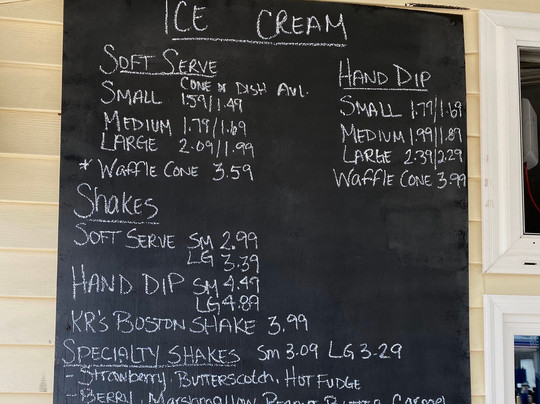 ICE CREAM
SOFT SERVE
CONE OR DISH AVL.
SMALL 1.59/1.49
MEDIUM 1.79/1.69
LARGE 2.09/1.99
* WAFFLE CONE 3.59
HAND DIP
SMALL 1.79/1.69
MEDIUM 1.99/1.89
LARGE 2.39/2.29
WAFFLE CONE 3.99
Shakes
SOFT SERVE SM 2.99
LG 3.39
HAND DIP SM 4.49
LG 4.89
KR'S BOSTON SHAKE 3.99
SPECIALTY SHAKES SM 3.09 LG 3.29
- STRAWBERRY, BUTTERSCOTCH, HOT FUDGE
- BERRY, MARSHMALLOW, PEANUT BUTTER, CARAMEL